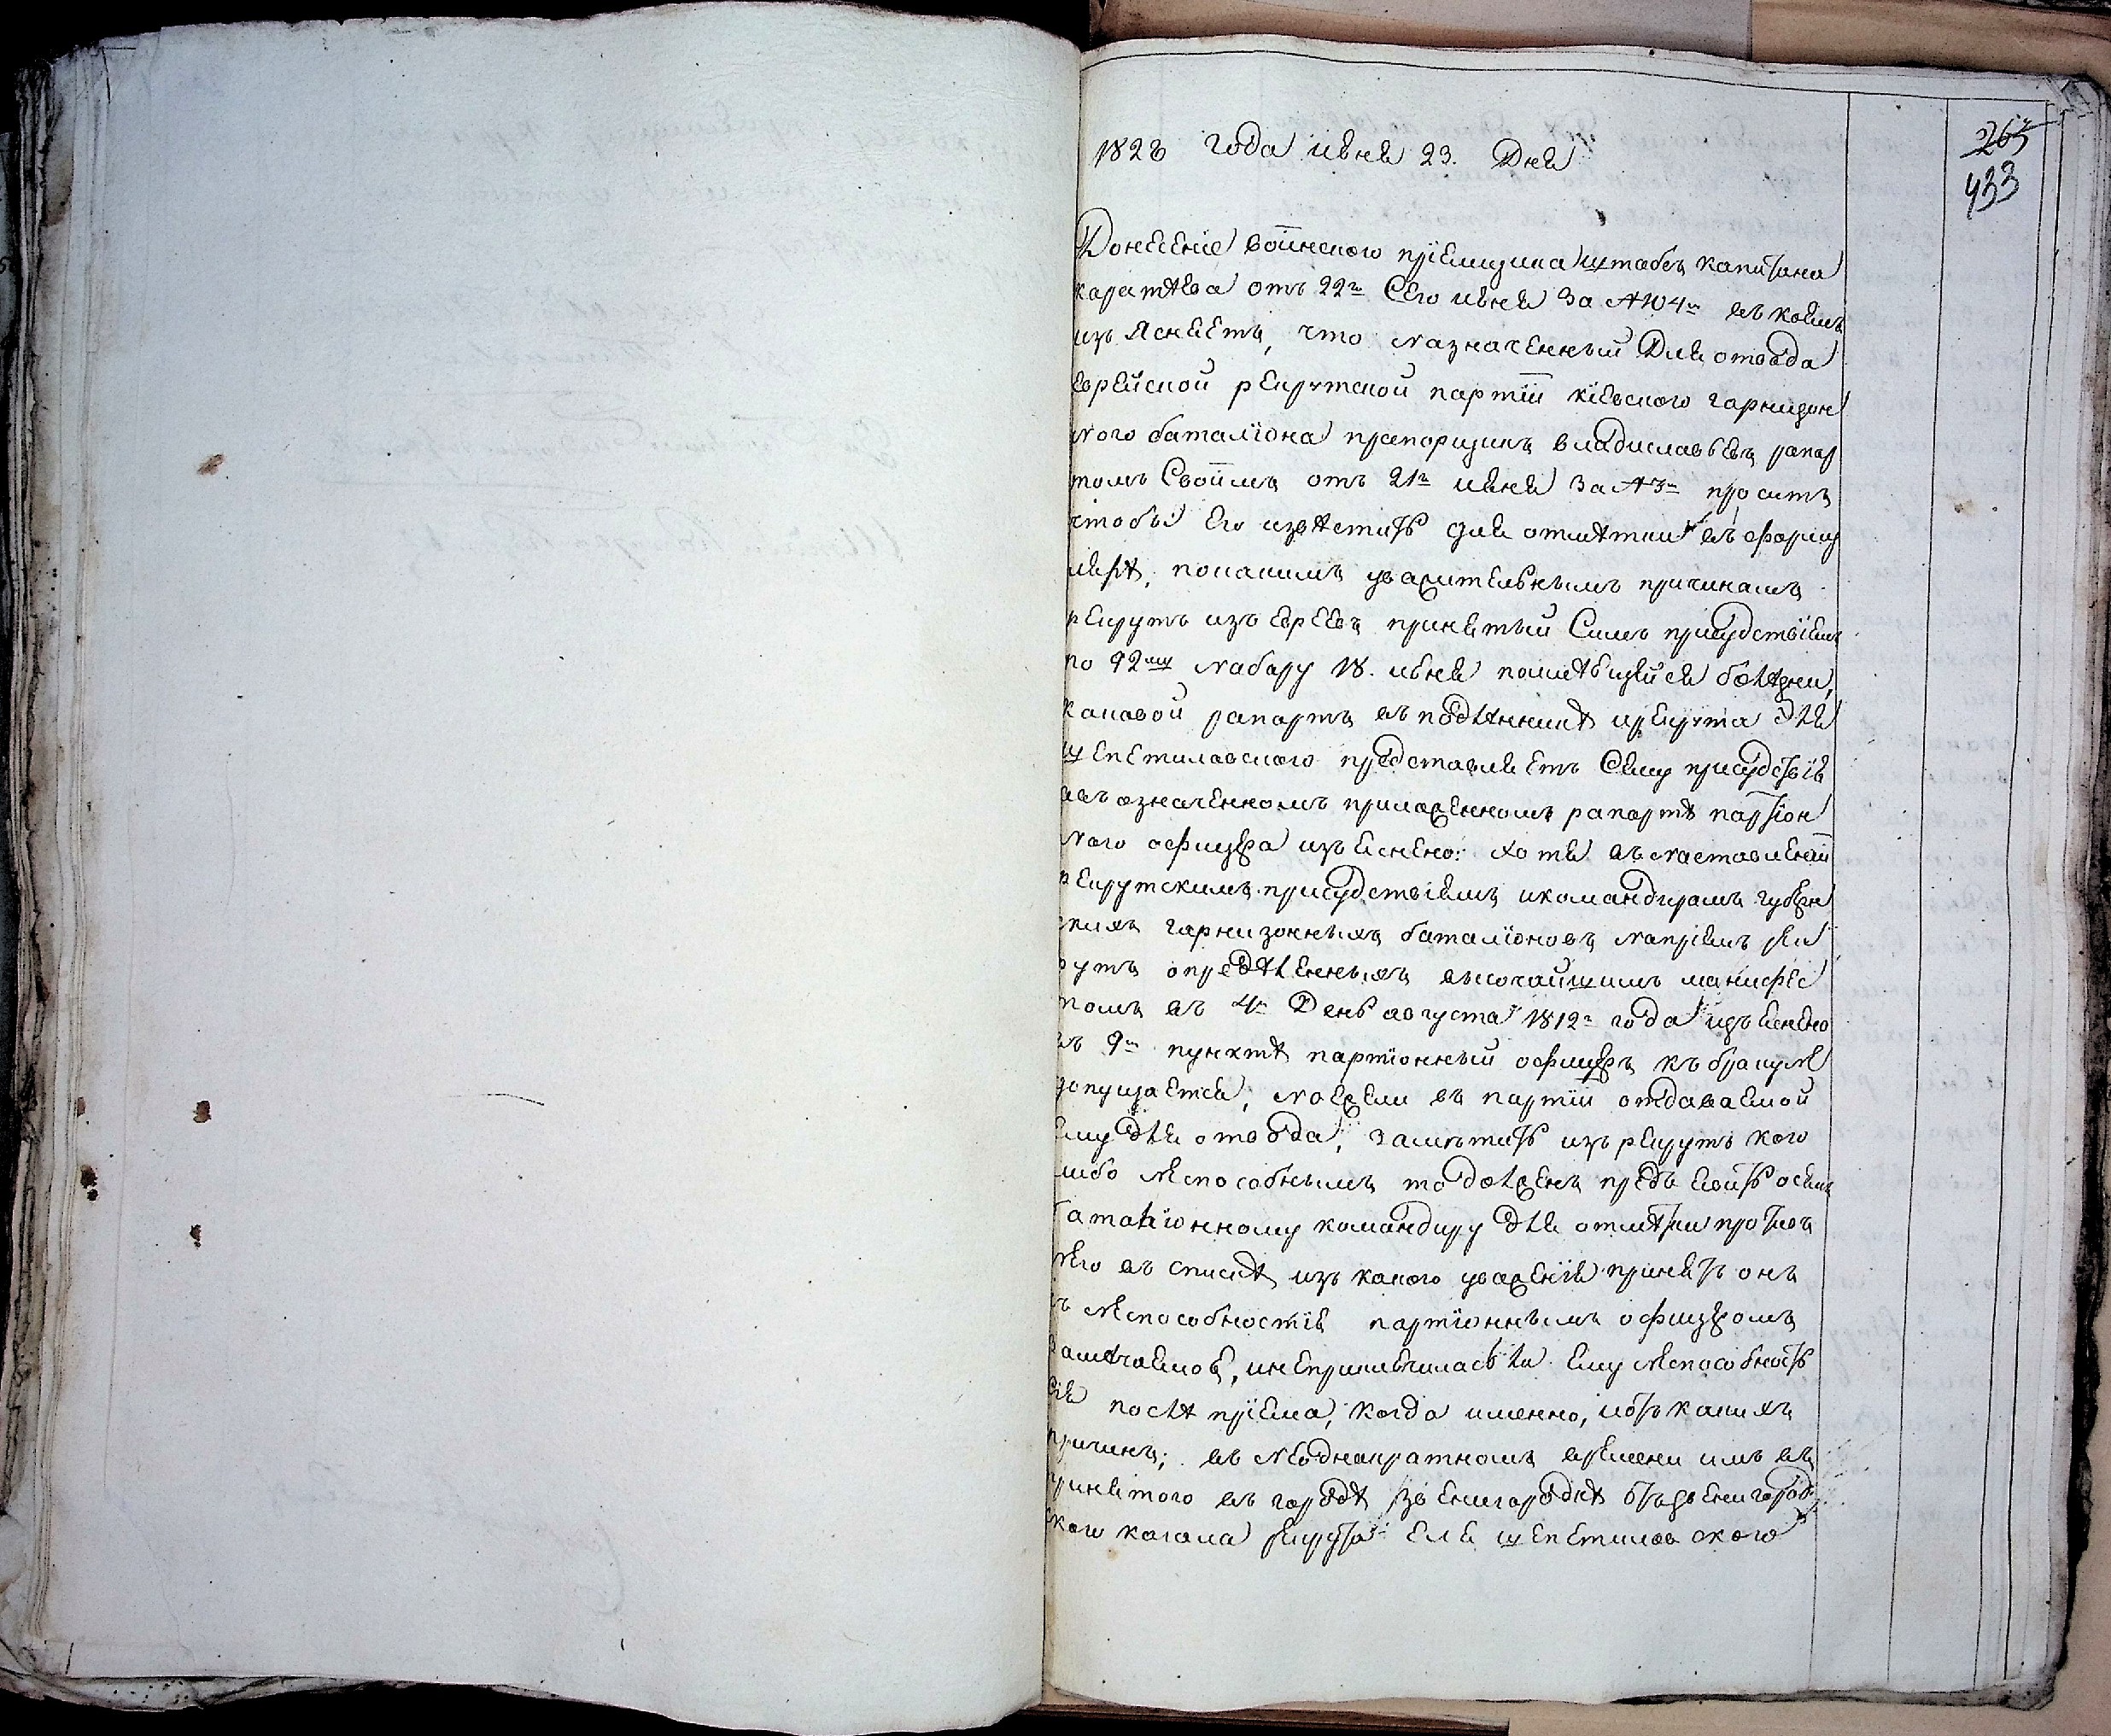 265
433
1828 года июня 23. Дня
Донесеніе воинского пріемщика штабсъ капитана
каратѣева отъ 22го Сего июня За №104м въ коемъ
изъ Ясняетъ, что Назначенный Для отвода
еврейской рекрутской партіи кіевского гарнизон
Ного баталіона прапорщикъ владиславьевъ рапор
томъ Своимъ отъ 21го июня За №3м проситъ
чтобы Его извѣстить для отмѣтки въ форму
лярѣ, покакимъ уважительнымъ причинамъ
рекрутъ изъ евреевъ принятый Симъ присудствіемъ
по 92му Набору 18. июня
каковой рапортъ въ подлинникѣ
Шепетиловского представляетъ Сему присудствію
въ означенномъ приложенномъ рапортѣ партіон
Ного офицера изъяснено: хотя въ Наставленіи
рекрутскимъ присудствіямъ икомандирамъ губерн
скихъ гарнизонныхъ баталіоновъ Напріемъ рек
рутъ опредѣленныхъ высочайшимъ манифес
томъ въ 4й День августа 1812го года изъяснено
въ 9м пунктѣ партіонный офицеръ къ браку Не
допущается, Но ежели въ партіи отдаваемой
ему для отвода, замѣтитъ изъ рекрутъ кого
либо Неспособнымъ то долженъ предъявить осемъ
баталіонному командиру для отмѣтки противъ
Него въ спискѣ изъ какого уваженія принятъ онъ
въ Неспособностію партіоннымъ офицеромъ
замѣчаемою, инеприключиласьли Ему Неспособность
сія послѣ пріема, когда именно, иотъ какихъ
причинъ; въ Неоднократномъ времени имъ въ
принятого въ городѣ Звенигородкѣ отъ Звенигород
ского кагала рекрута Еля Шепетиловского